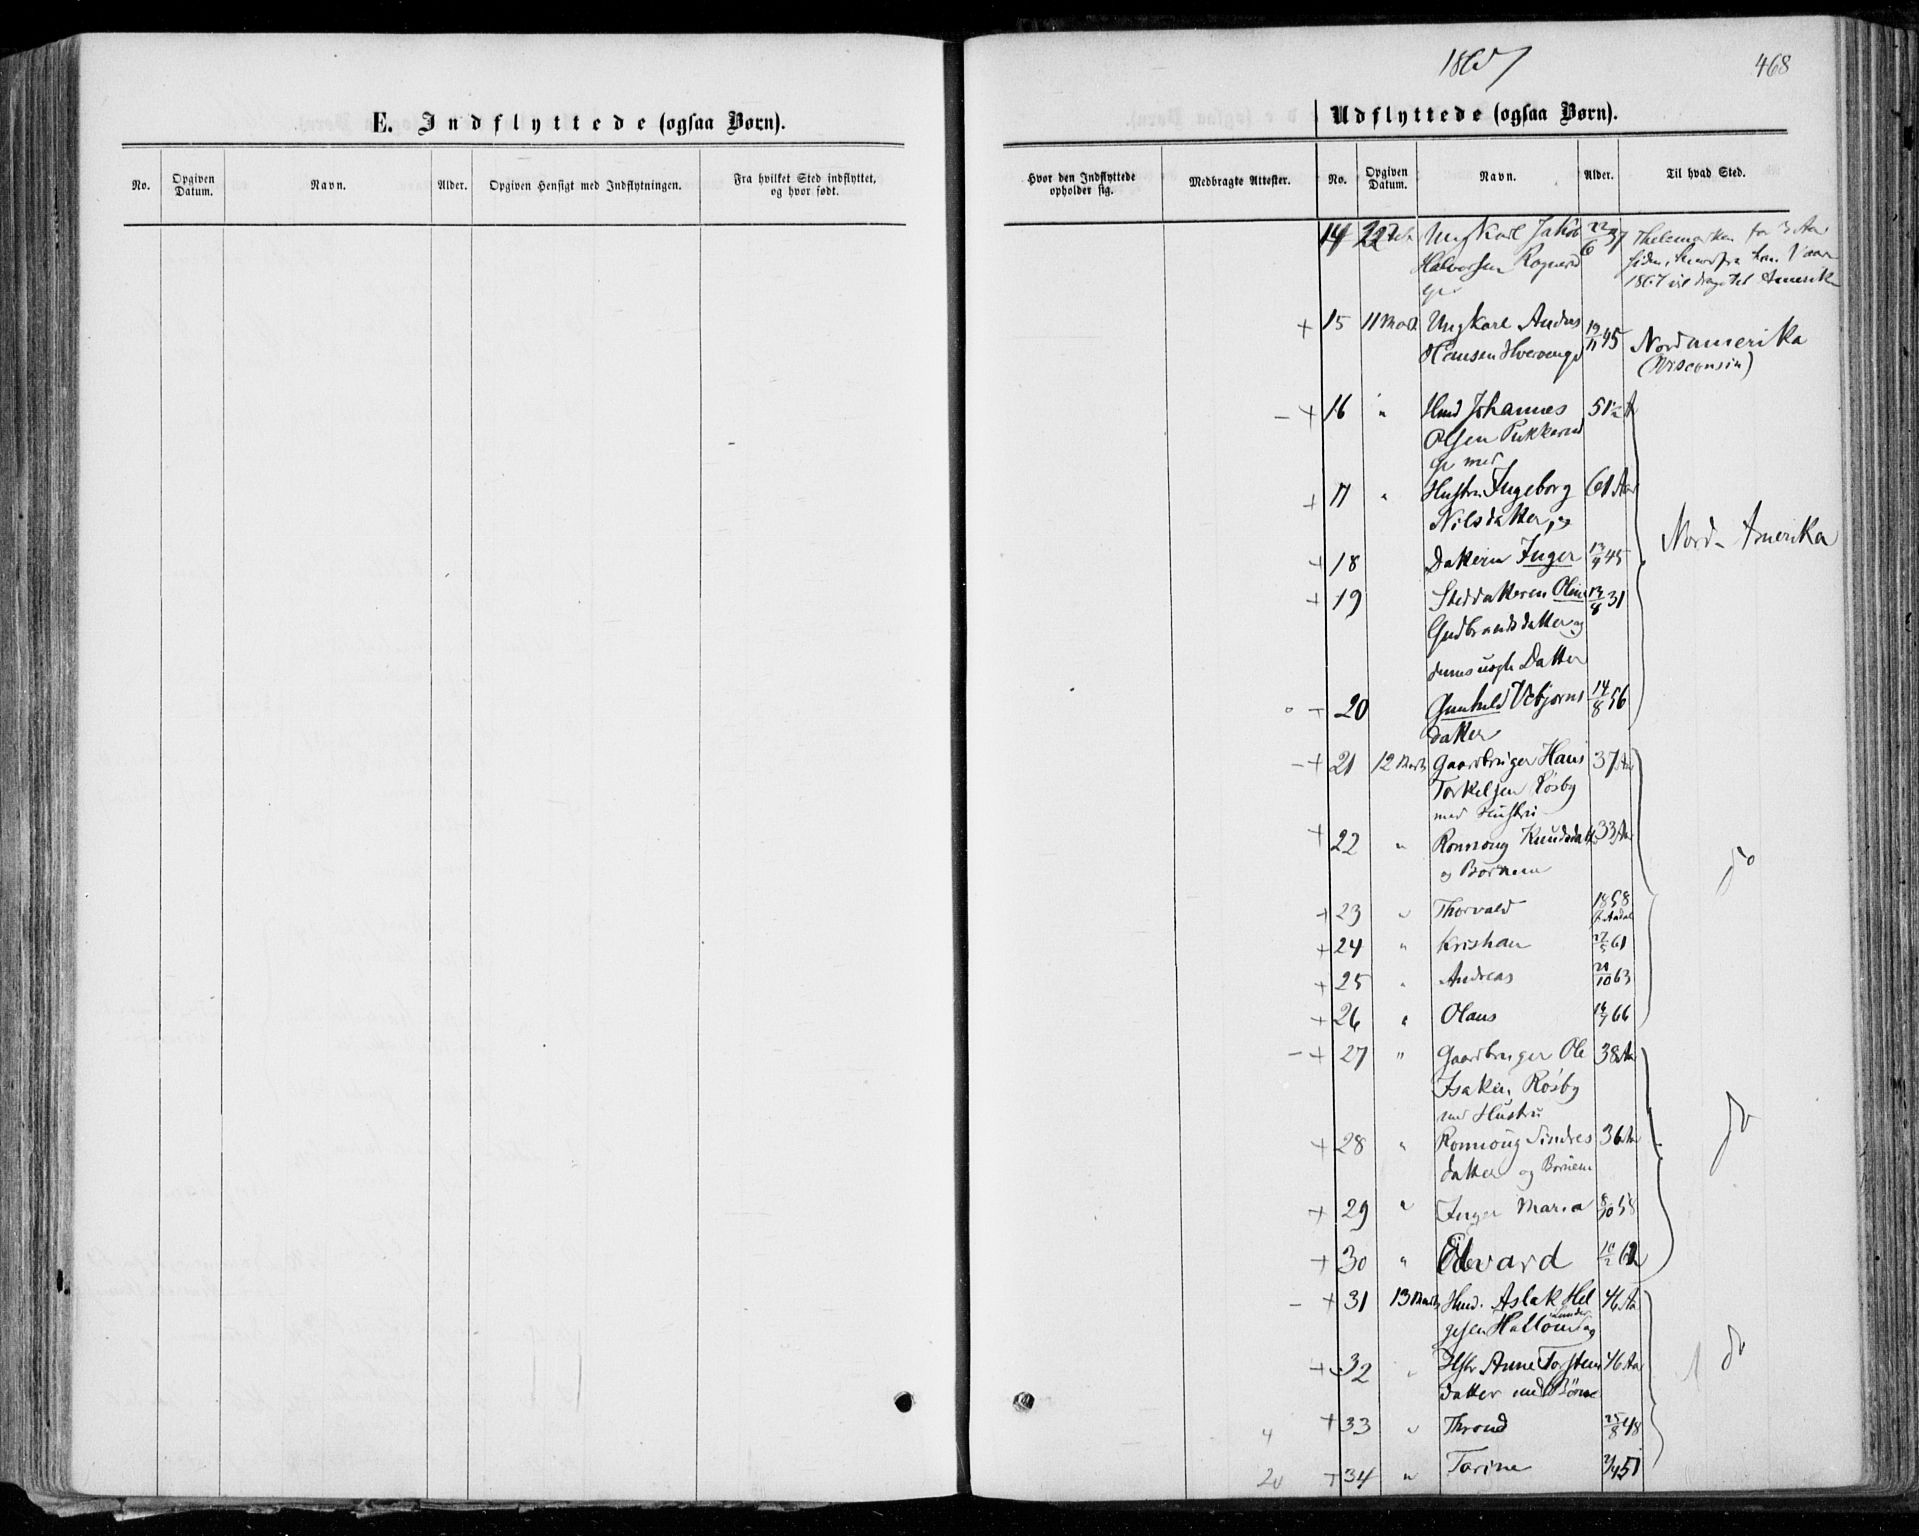 E. Indflyttede (ogsaa Børn).
No.
Opgiven Datum.
Navn.
Alder.
Opgiven Hensigt med Indflytningen.
Fra hvilket Sted indflyttet, og hvor født.
1867
468
Udflyttede (ogsaa Børn).
Hvor den Indflyttede opholder sig.
Medbragte Attester.
No.
Opgiven Datum.
Navn.
Alder.
Til hvad Sted.
14 22 Feb Ungkarl Jakob 22/6 37 Thelemarken for 3 Aar
Halvorsen
1867 vil drage til Amerika
+ 15 11 Marts Ungkarl Andres 19/11 45 Nordamerika
Hansen (Wisconsin)
- + 16 " Hmd Johannes 51½ A
Olsen Pukkerud
med
+ 17 " Hustru Ingeborg 61 Aar
Nilsdatter, og
Nord-Amerika
+ 18 Datteren Inger 13/9 45
+ 19 Steddatteren Oline 13/8 31
Gudbrandsdatter og
dennes uægte Datter
+ 20 Gunhild Vebjørns 14/8 56
datter
- + 21 12 Marts Gaardbruger Hans 37 Aar
Torkelsen Røsby
med Hustru
+ 22 " Rønnoug Knudsdatt 33 Aar
og Børnene
do
+ 23 " Thorvald 1858
+ 24 " Kristian 27/5 61
+ 25 " Andreas 20/10 63
+ 26 " Olaus 14/7 66
- + 27 " Gaardbruger Ole 38 Aar
Isaksen Røsby
med Hustru
do
+ 28 " Rønnoug Sindres 36 Aar
datter og Børnene
+ 29 " Inger Maria 8/10 58
+ 30 " Edvard
- + 31 13 Marts Hmd. Aslak Hel 46 Aar
gesen
do
+ 32 " Hstr Anne Torstens 46 Aar
datter med Børn
+ 33 " Thrond 25/8 48
4
+ 34 " Torine 2/4 51
20